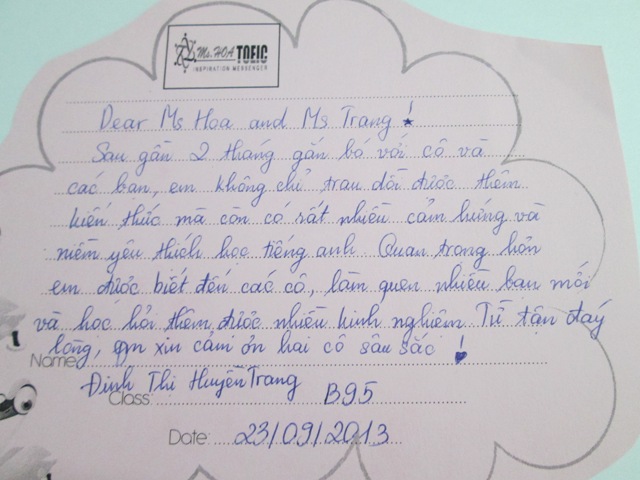 Ms. HOA TOEIC
INSPIRATION MESSENGER
Dear Ms Hoa and Ms Trang!
Sau gần 2 tháng gắn bó với cô và
các bạn, em không chỉ trau dồi được thêm
kiến thức mà còn có rất nhiều cảm hứng và
niềm yêu thích học tiếng anh. Quan trọng hơn
em được biết đến các cô, làm quen nhiều bạn mới
và học hỏi thêm được nhiều kinh nghiệm. Từ tận đáy
lòng, em xin cảm ơn hai cô sâu sắc!
Name:
Đinh Thị Huyền Trang
Class: B95
Date: 23/09/2013